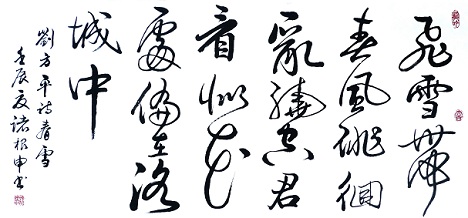 飛雪帶
春風徘徊
亂繞空君
看似花
處偏在洛
城中
劉方平詩春雪
壬辰夏諸根申書